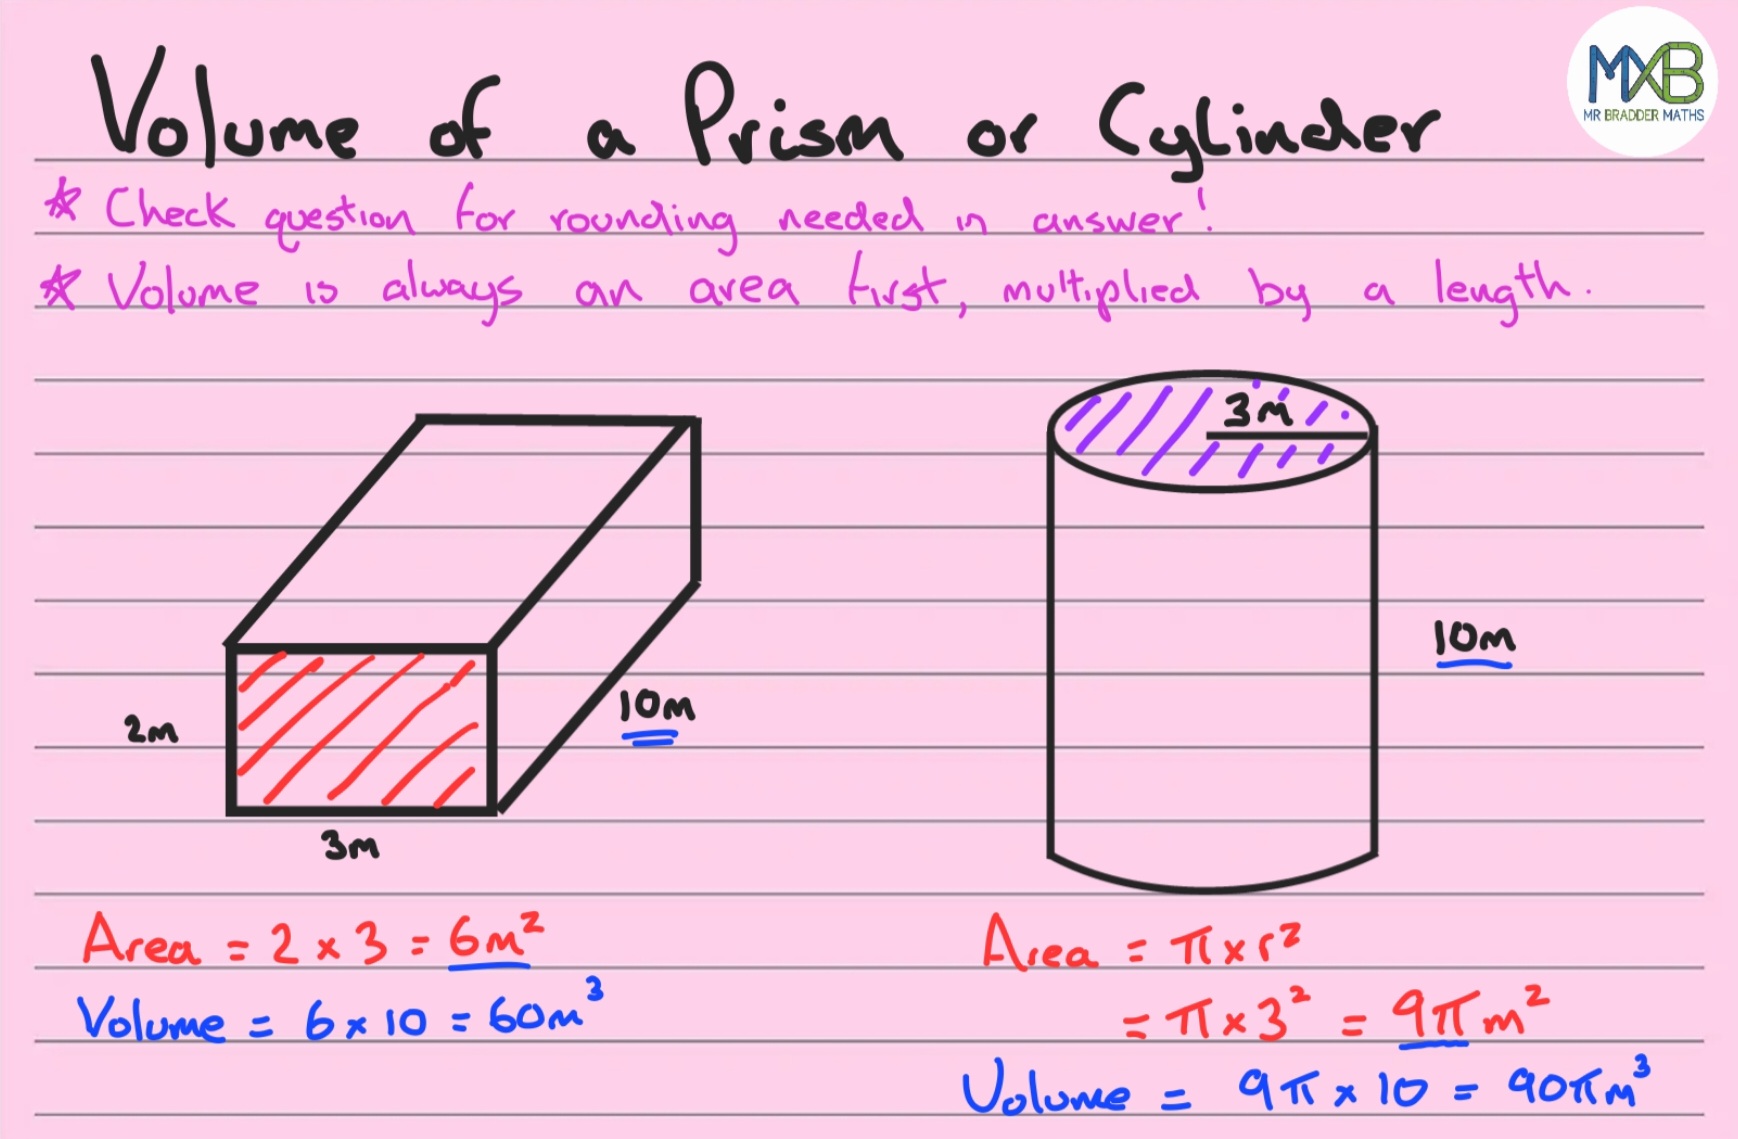 Volume of a Prism or Cylinder
MXB
MR BRADDER MATHS
* Check question for rounding needed in answer!
* Volume is always an area first, multiplied by a length.
3m
10m
2m
10m
3m
Area = 2 x 3 = 6m²
Volume = 6 x 10 = 60m³
Area = π x r²
= π x 3² = 9π m²
Volume = 9π x 10 = 90πm³